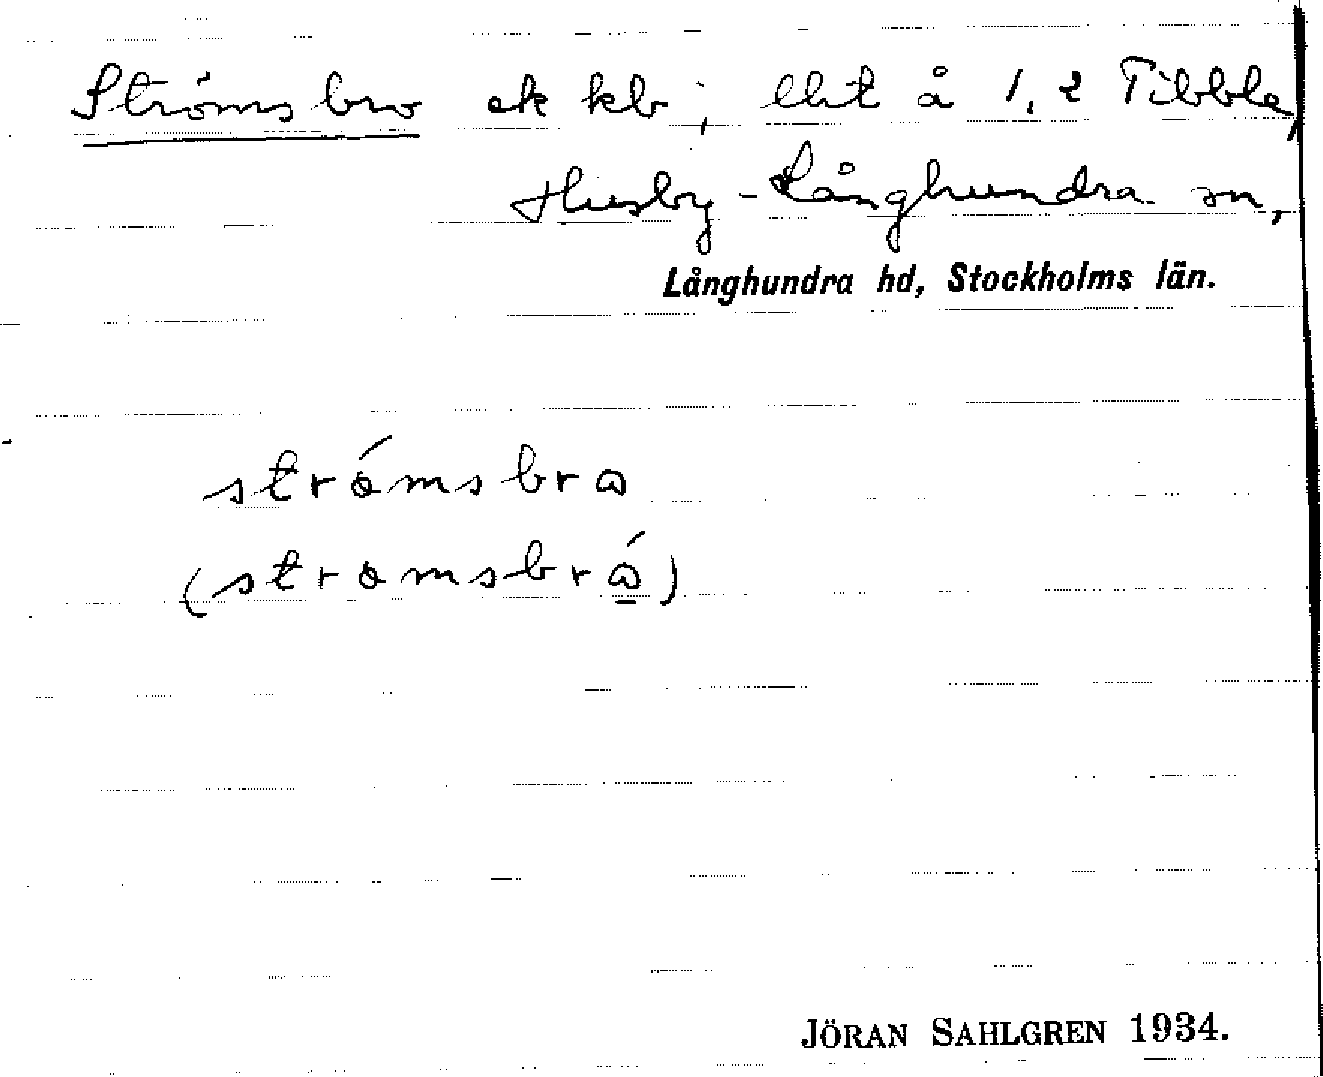 Strömsbro ek kb; lht å 1, 2 Tibble,
Husby-Långhundra sn,
Långhundra hd, Stockholms län.
strǿmsbro
(strømsbró)
JÖRAN SAHLGREN 1934.